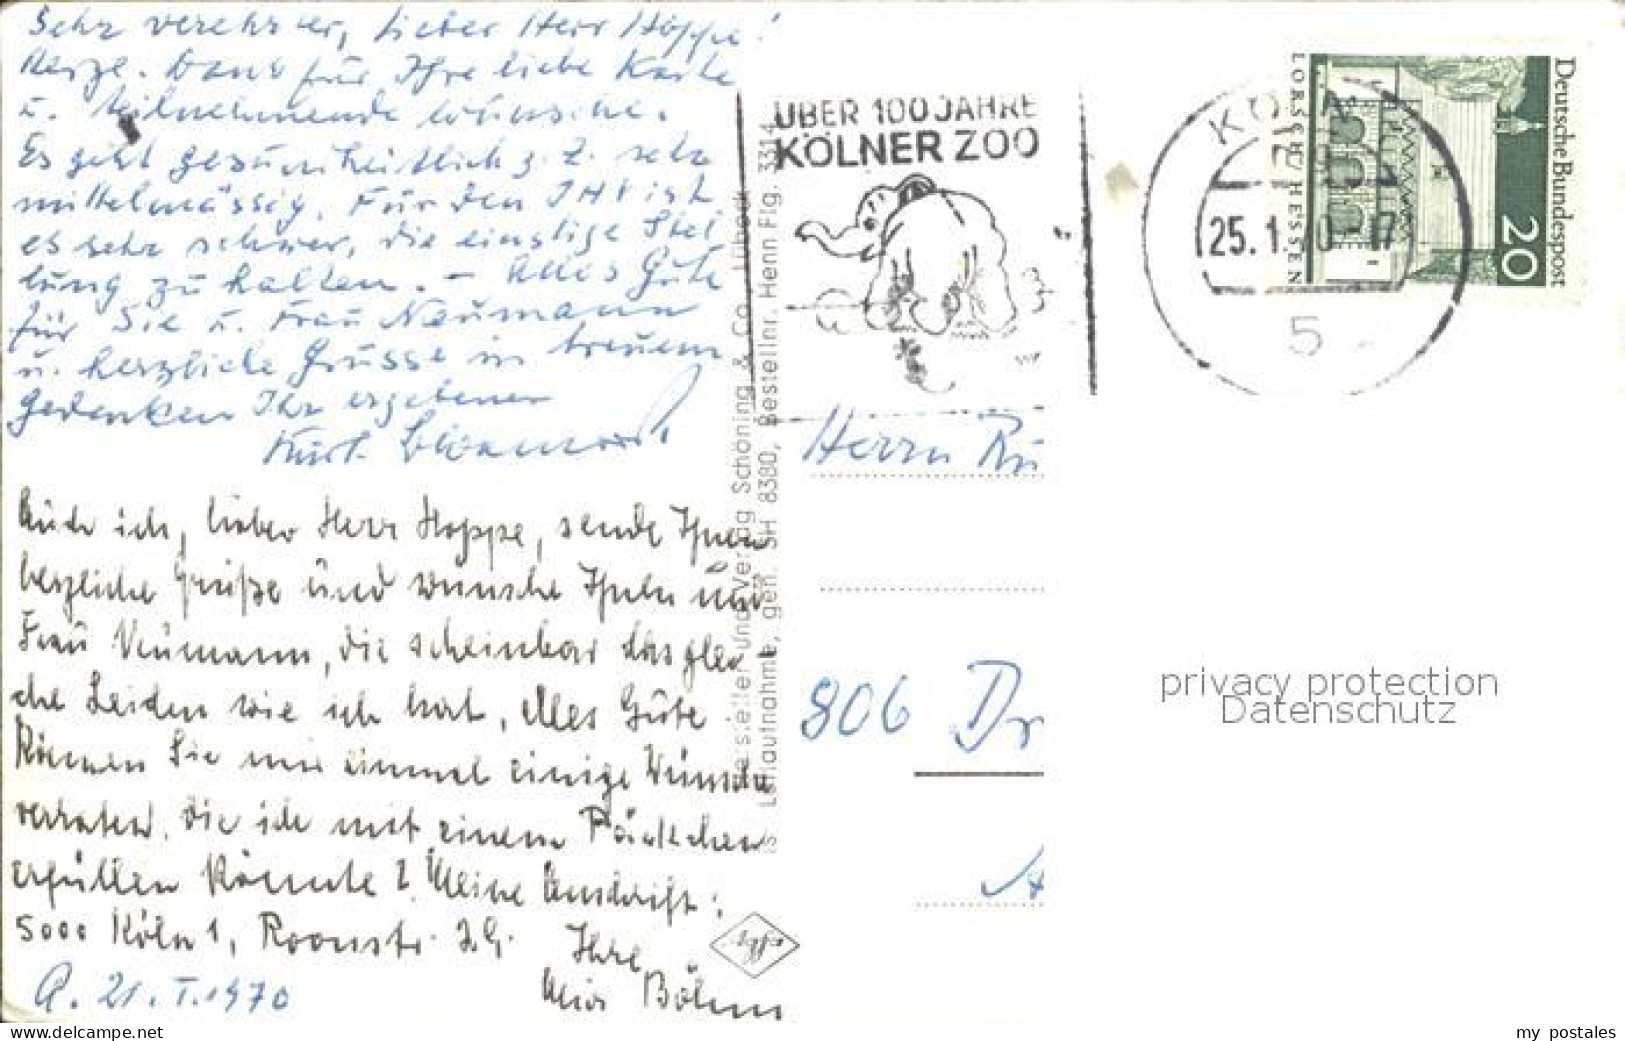 Sehr verehrter, lieber Herr Hoppe!
Herzl. Dank für Ihre liebe Karte
u. teilnehmende Wünsche.
Es geht gesundheitlich z. Z. sehr
mittelmässig. Für den IHV ist
es sehr schwer, die einstige Stel
lung zu halten. – Alles Gute
für Sie u. Frau Neumann
u. herzliche Grüsse in treuem
Gedenken Ihr ergebener
Kurt
Auch ich, lieber Herr Hoppe, sende Ihnen
herzliche Grüße und wünsche Ihnen und
Frau Neumann, die scheinbar das glei
che Leiden wie ich hat, Alles Gute
Können Sie mir einmal einige Wünsche
verraten, die ich mit einem Päckchen
erfüllen könnte? Meine Anschrift:
5000 Köln 1, Roonstr.
Ihre
Böhm
21. I. 1970
Hersteller und Verlag Schöning & Co., Lübeck
Luftaufnahme, gen. SH 8380, Bestellnr. Henn Flg. 3314
ÜBER 100 JAHRE
KÖLNER ZOO
KÖLN
25. 1. 70 - 17
5
Deutsche Bundespost
20
LORSCH / HESSEN
Herrn Ru
806 Dr
A
privacy protection
Datenschutz
is
my postales
www.delcampe.net